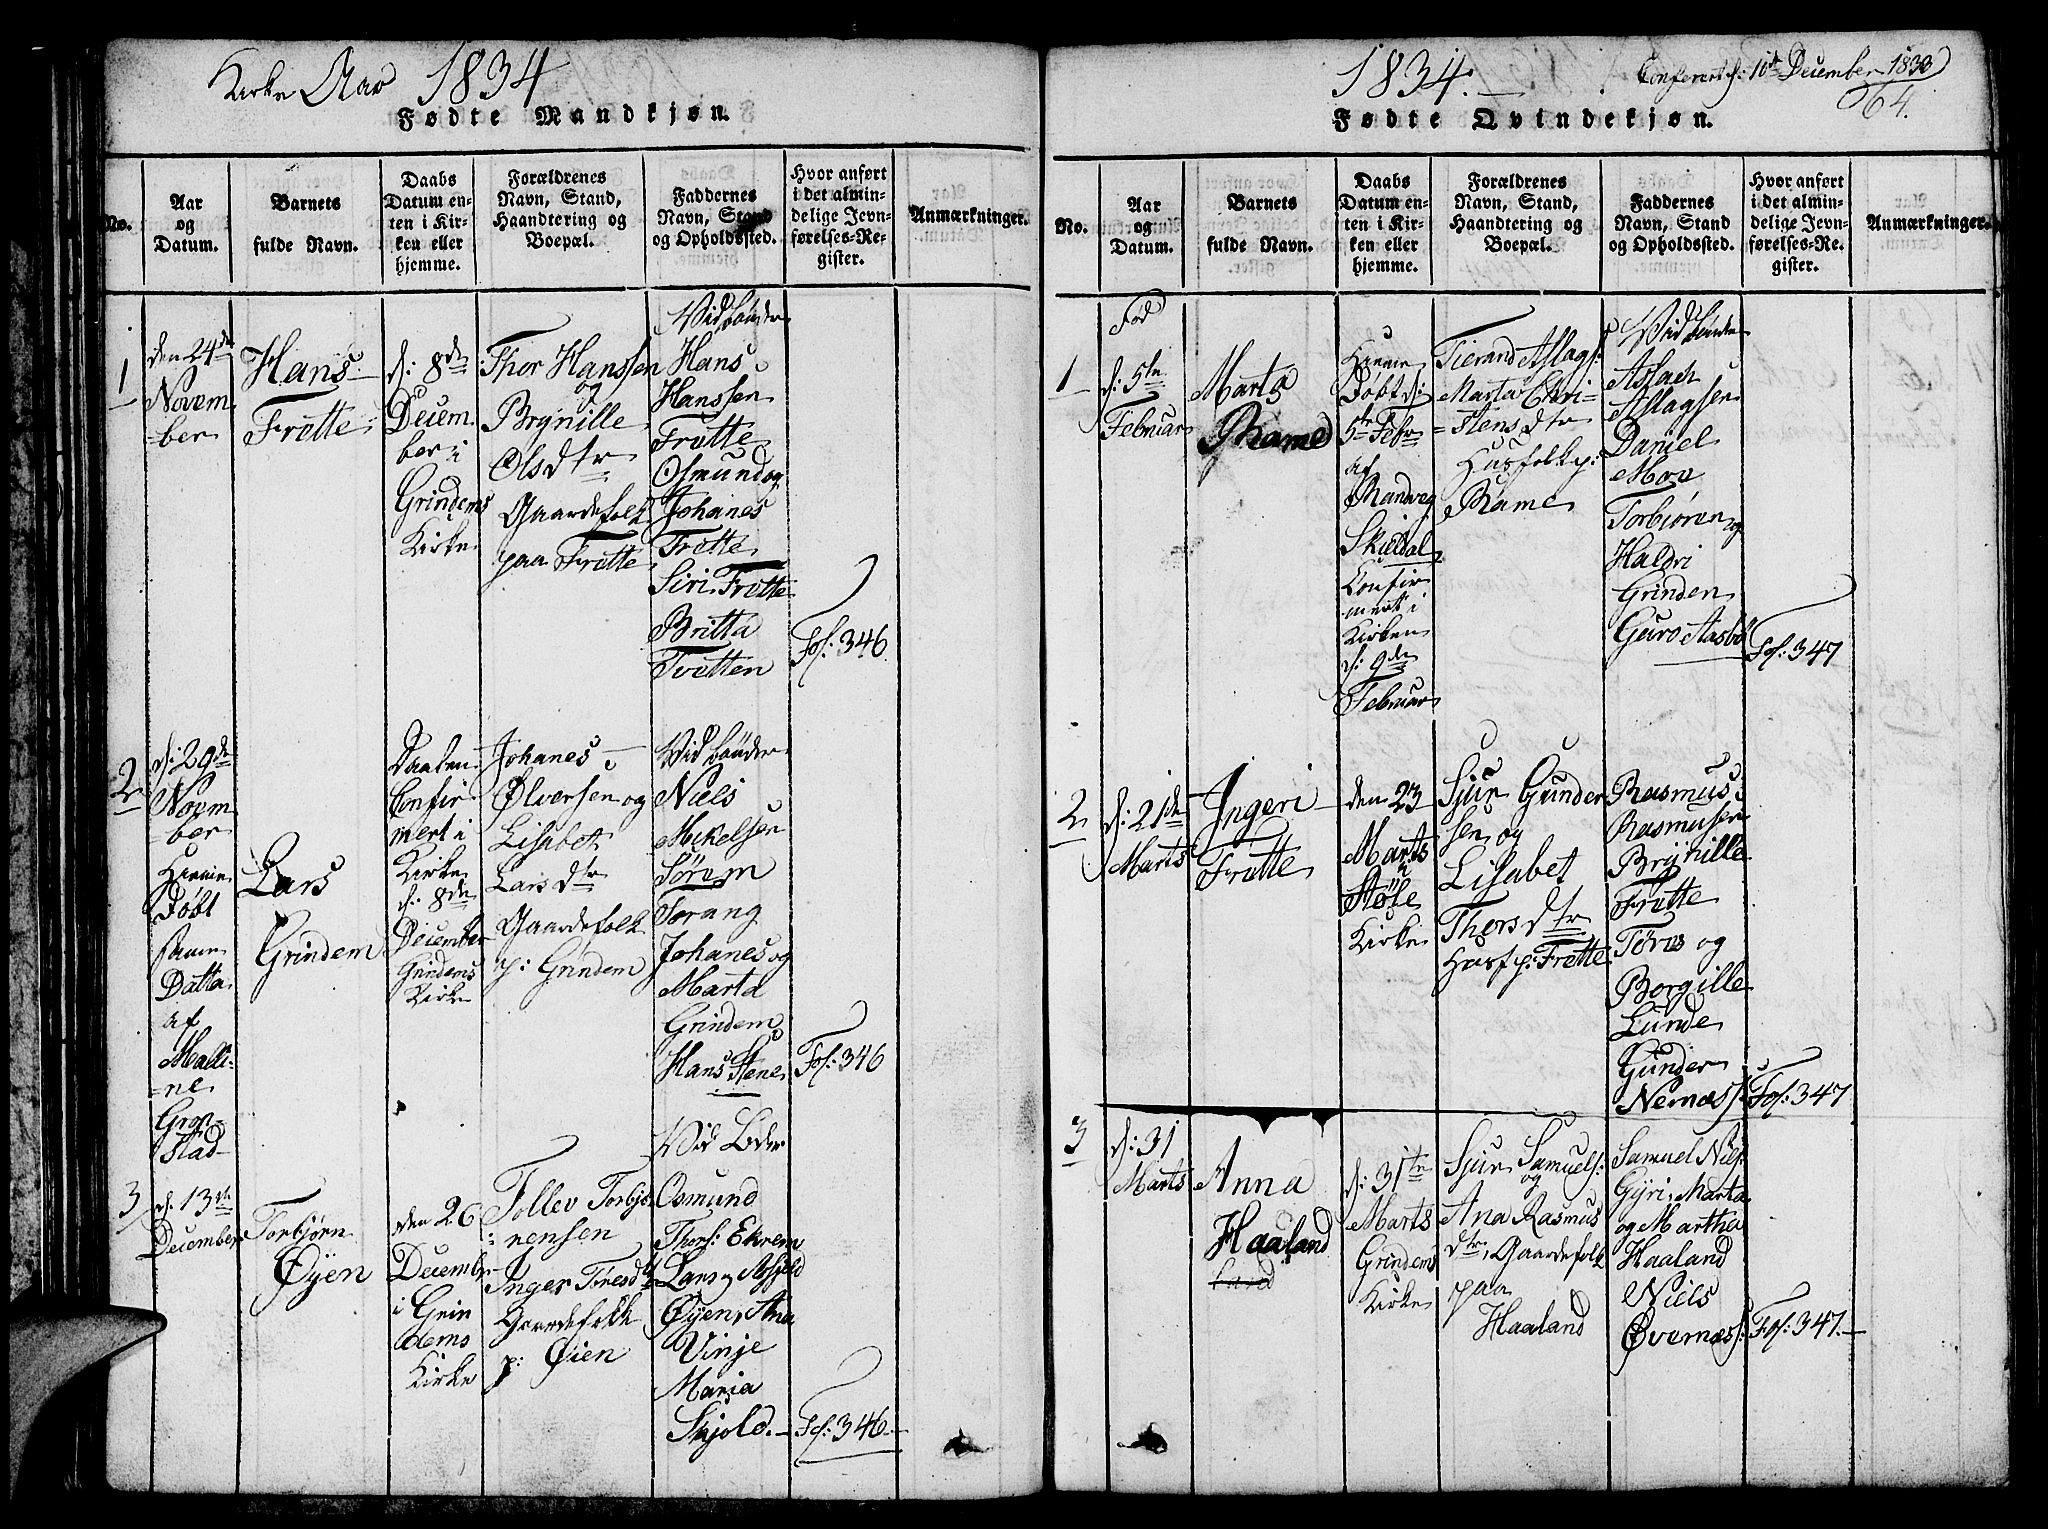 Kirke Aar 1834
Fødte Mandkjøn.
No.
Aar
og
Datum.
Barnets
fulde Navn.
Daabs
Datum en-
ten i Kir-
ken eller
hjemme.
Forældrenes
Navn, Stand,
Haandtering og
Boepæl.
Faddernes
Navn, Stand
og Opholdssted.
Hvor anført
i det almin-
delige Jevn-
førelses-Re-
gister.
Anmærkninger.
1
den 24de
Novem
=ber
Hans
Frøtte
d: 8de
Decem
ber i
Grindems
Kirke
Thor Hanssen
og
Brynille
Olsdtr
Gaardefolk
paa Frøtte
Vidb
Hans
Hanssen
Frøtte
Osmund og
Johanes
Frette
Siri Frøtte
Britta
Tvetten
Fol: 346
2
d: 29de
Novem
ber
Hiemme
Døbt
Datta
af
Malli-
=ne
Grøn-
stad
Lars
Grindem
Daaben
Confir
mert i
Kirke
d: 8de
December
Grindems
Kirke
Johanes
Ølversen og
Lisabet
Larsdtr
Gaardefolk
p: Grindem
Vid
Niels
Mekelsen
Sørem
Torang
Johanes og
Marta
Grindem
Hans Stene
Fol: 346
3
d: 13de
December
Torbjørn
Øyen
den 26
December
i Grin
dems
Kirke
Tollev Torbjø
rensen
Inger Toresdtr
Gaardefolk
p: Øien
Vid
Osmund
Thors: Ekrem
Lars og Asseld
Øyen, Ana
Vinje
Maria
Skjold.
Fol: 346
1834.
Conferert d: 10de December 1833
64.
Fødte Qvindekjøn.
No.
Aar
og
Datum.
Barnets
fulde Navn.
Daabs
Datum en-
ten i Kir-
ken eller
hjemme.
Forældrenes
Navn, Stand,
Haandtering og
Boepæl.
Faddernes
Navn, Stand
og Opholdssted.
Hvor anført
i det almin-
delige Jevn-
førelses-Re-
gister.
Anmærkninger.
1
Fød
d: 5te
Februar
Marta
Rame
Hiemme
Døbt d:
5te Febr
af
Randveg
Skieldal
Confir
mert i
Kirken
d: 9de
Februar
Tierand Aslags:
Marta Chri-
=stensdtr
Husfolk p:
Rame
Vid
Aslach
Aslagsen
Daniel
Moe
Torbiøren og
Haldri
Grinden
Guro Aasbø
Fol: 347
2
d: 21de
Marts
Ingeri
Frøtte
den 23
Marts
i
Støle
Kirke
Sjur Gunder
sen og
Lisabet
Thorsdtr
Husf p: Frette
Rasmus
Rasmusen
Brynille
Frøtte
Tøres og
Borgille
Lunde
Gunder
Nernæs:
Fol: 347
3
d: 31
Marts
Anna
Haaland
d: 31te
Marts
Grindems
Kirke
Sjur Samuels:
og
Ana Rasmus
dtr, Gaardefolk
paa
Haaland
Samuel Niels:
Gyri, Marta
og Martha
Haaland
Niels
Øvernæs:
Fol: 347.